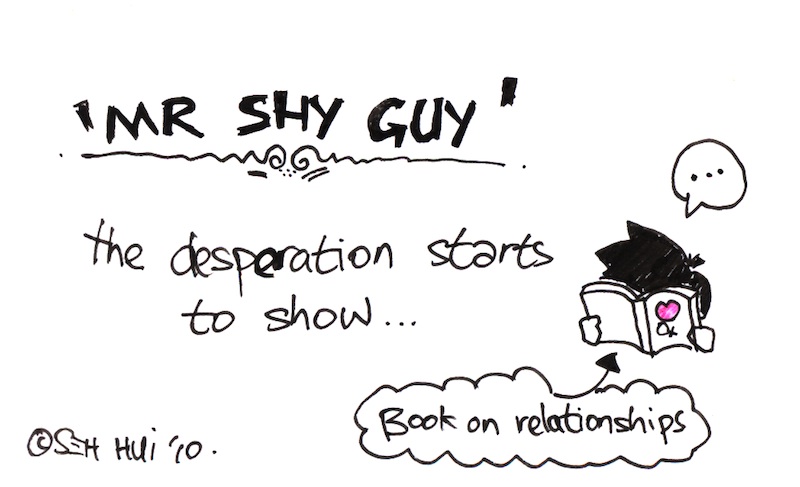 'MR SHY GUY'
...
the desperation starts
to show...
Book on relationships
©SEH HUI '10.